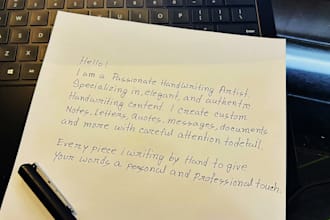 Hello!
I am a Passionate Handwriting Artist
Specializing in, elegant, and authentic
Handwriting content I create custom
Notes, Letters, Quotes, messages, documents
and more with careful attention todetail.
Every piece i writing by Hard to give
Your words a personal and Professional touch.